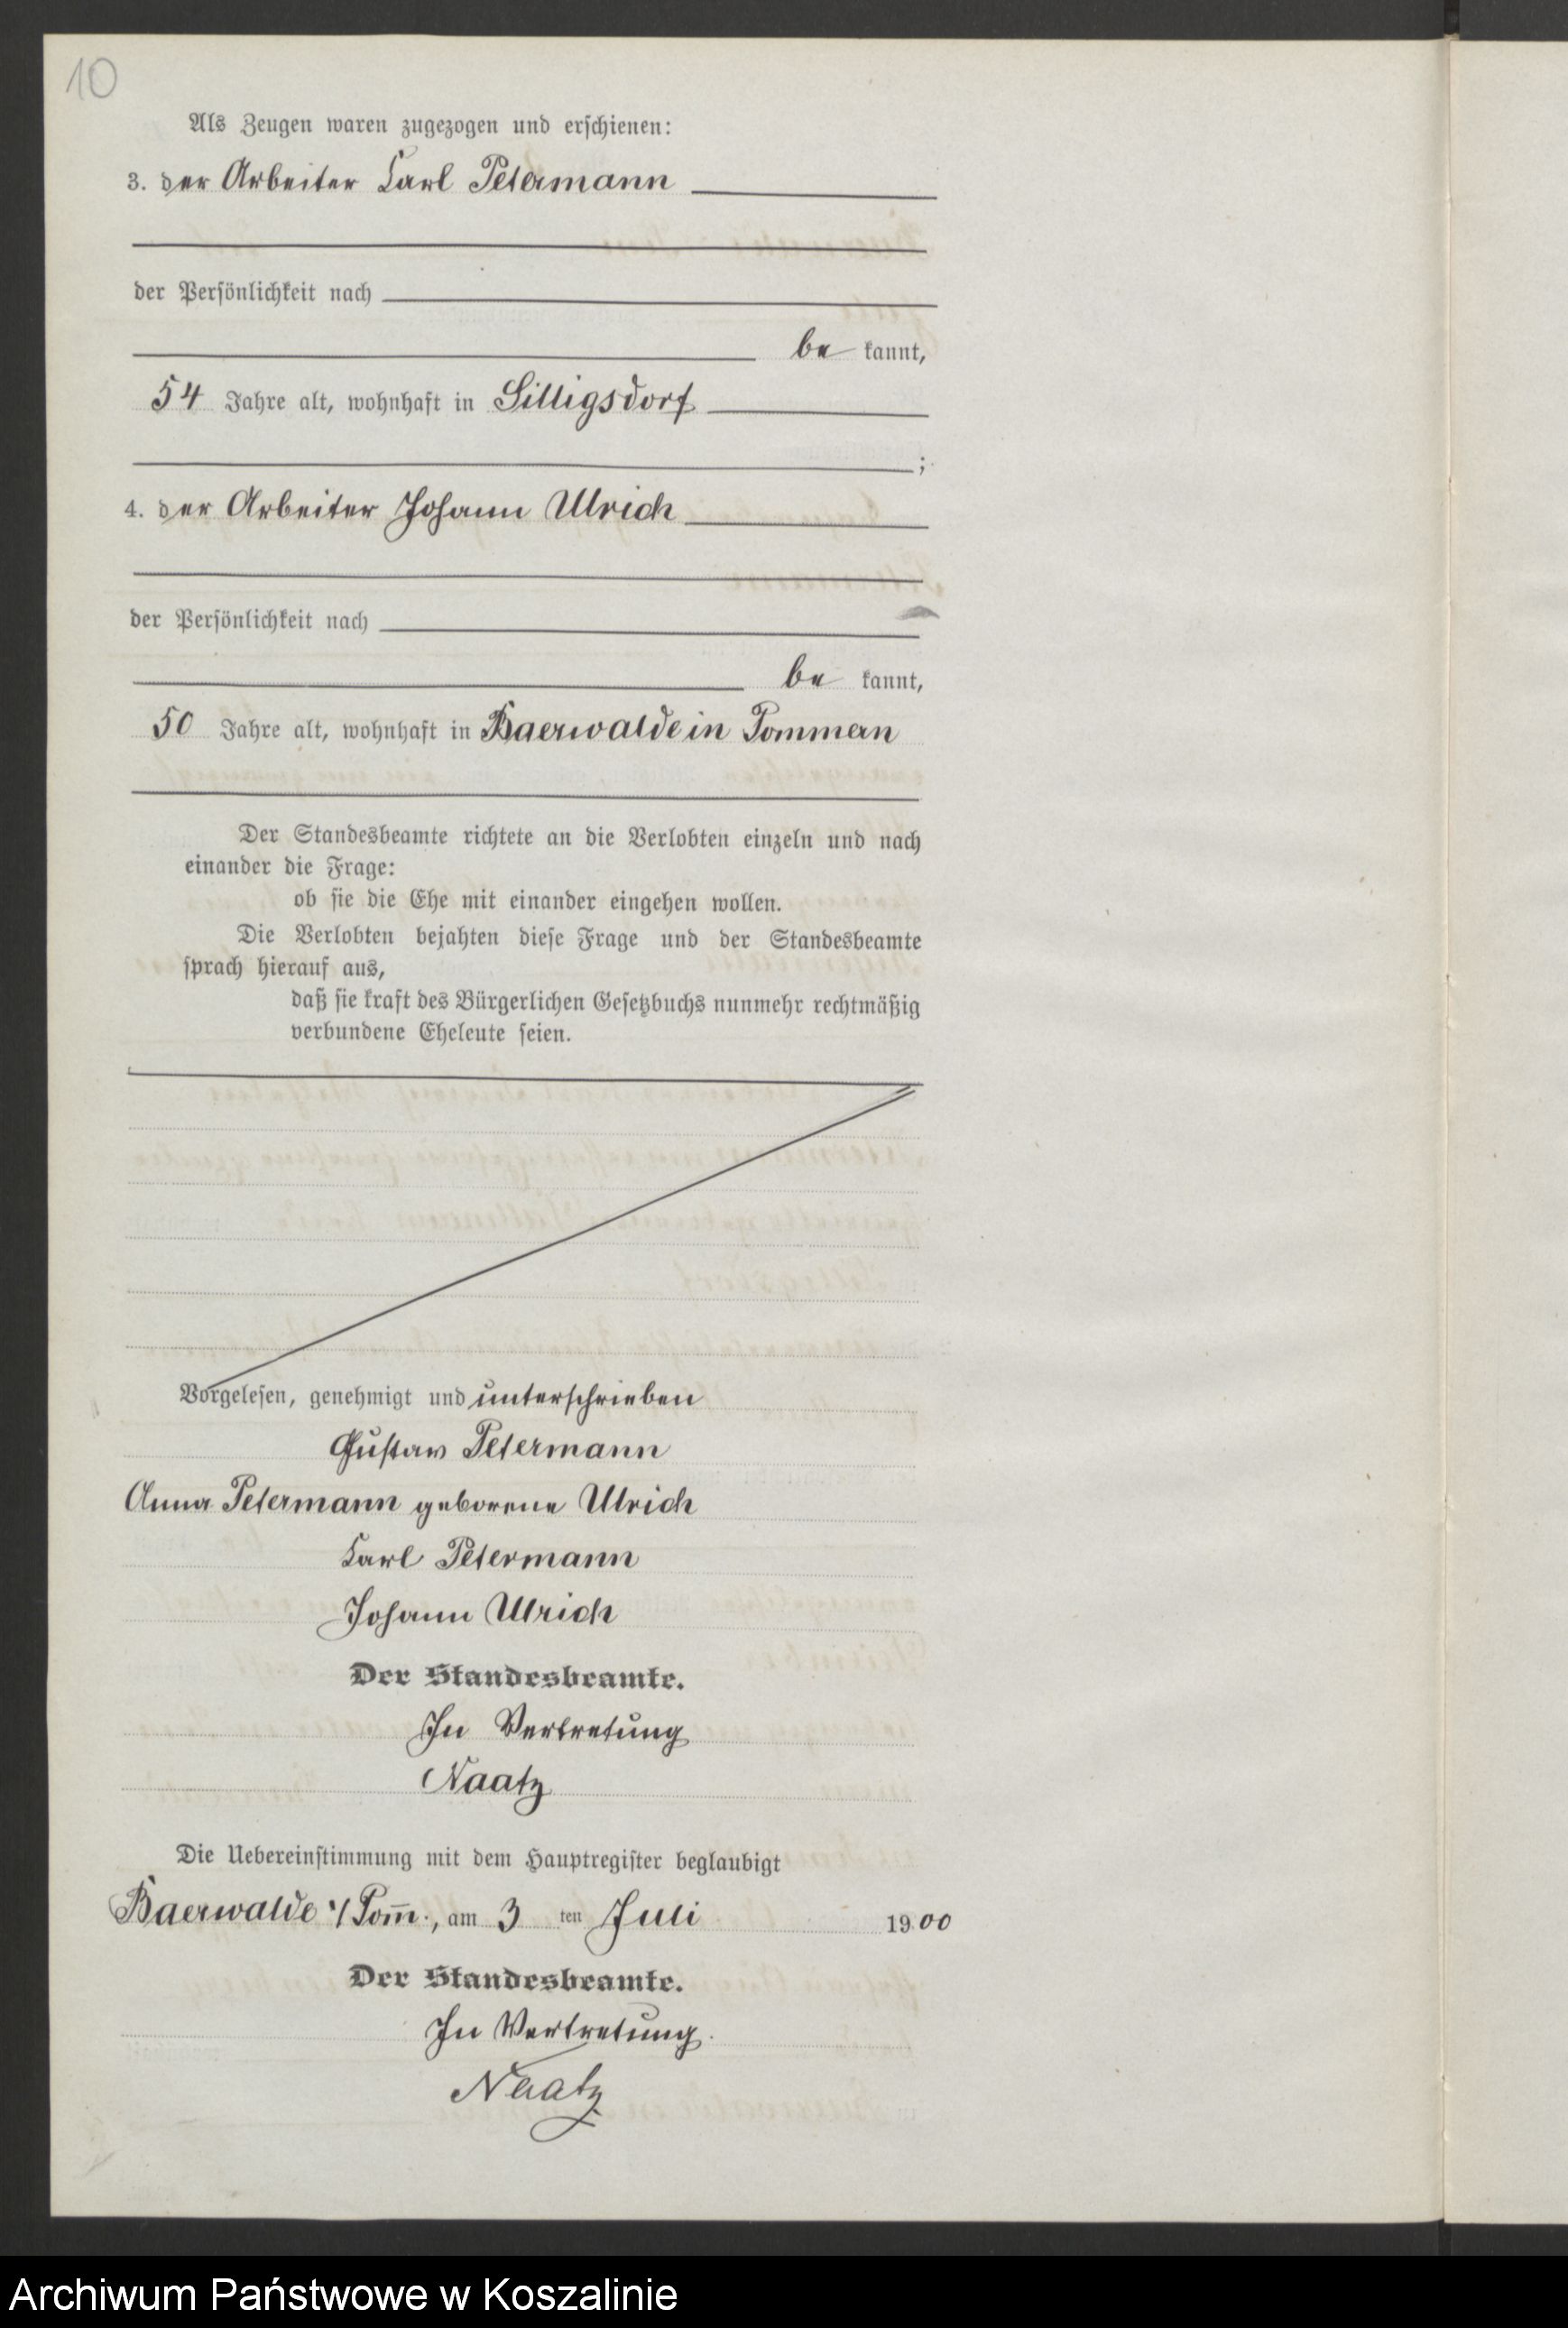 10
Als Zeugen waren zugezogen und erschienen:
3. der Arbeiter Carl Petermann
der Persönlichkeit nach
be kannt,
54 Jahre alt, wohnhaft in Silligsdorf
;
4. der Arbeiter Johann Ulrich
der Persönlichkeit nach
be kannt,
50 Jahre alt, wohnhaft in Baerwalde in Pommern
Der Standesbeamte richtete an die Verlobten einzeln und nach
einander die Frage:
ob sie die Ehe mit einander eingehen wollen.
Die Verlobten bejahten diese Frage und der Standesbeamte
sprach hierauf aus,
daß sie kraft des Bürgerlichen Gesetzbuchs nunmehr rechtmäßig
verbundene Eheleute seien.
Vorgelesen, genehmigt und unterschrieben
Gustav Petermann
Anna Petermann geborene Ulrich
Carl Petermann
Johann Ulrich
Der Standesbeamte.
In Vertretung
Naatz
Die Uebereinstimmung mit dem Hauptregister beglaubigt
Baerwalde i/Pom̅., am 3 ten Juli 1900
Der Standesbeamte.
In Vertretung.
Naatz
Archiwum Państwowe w Koszalinie